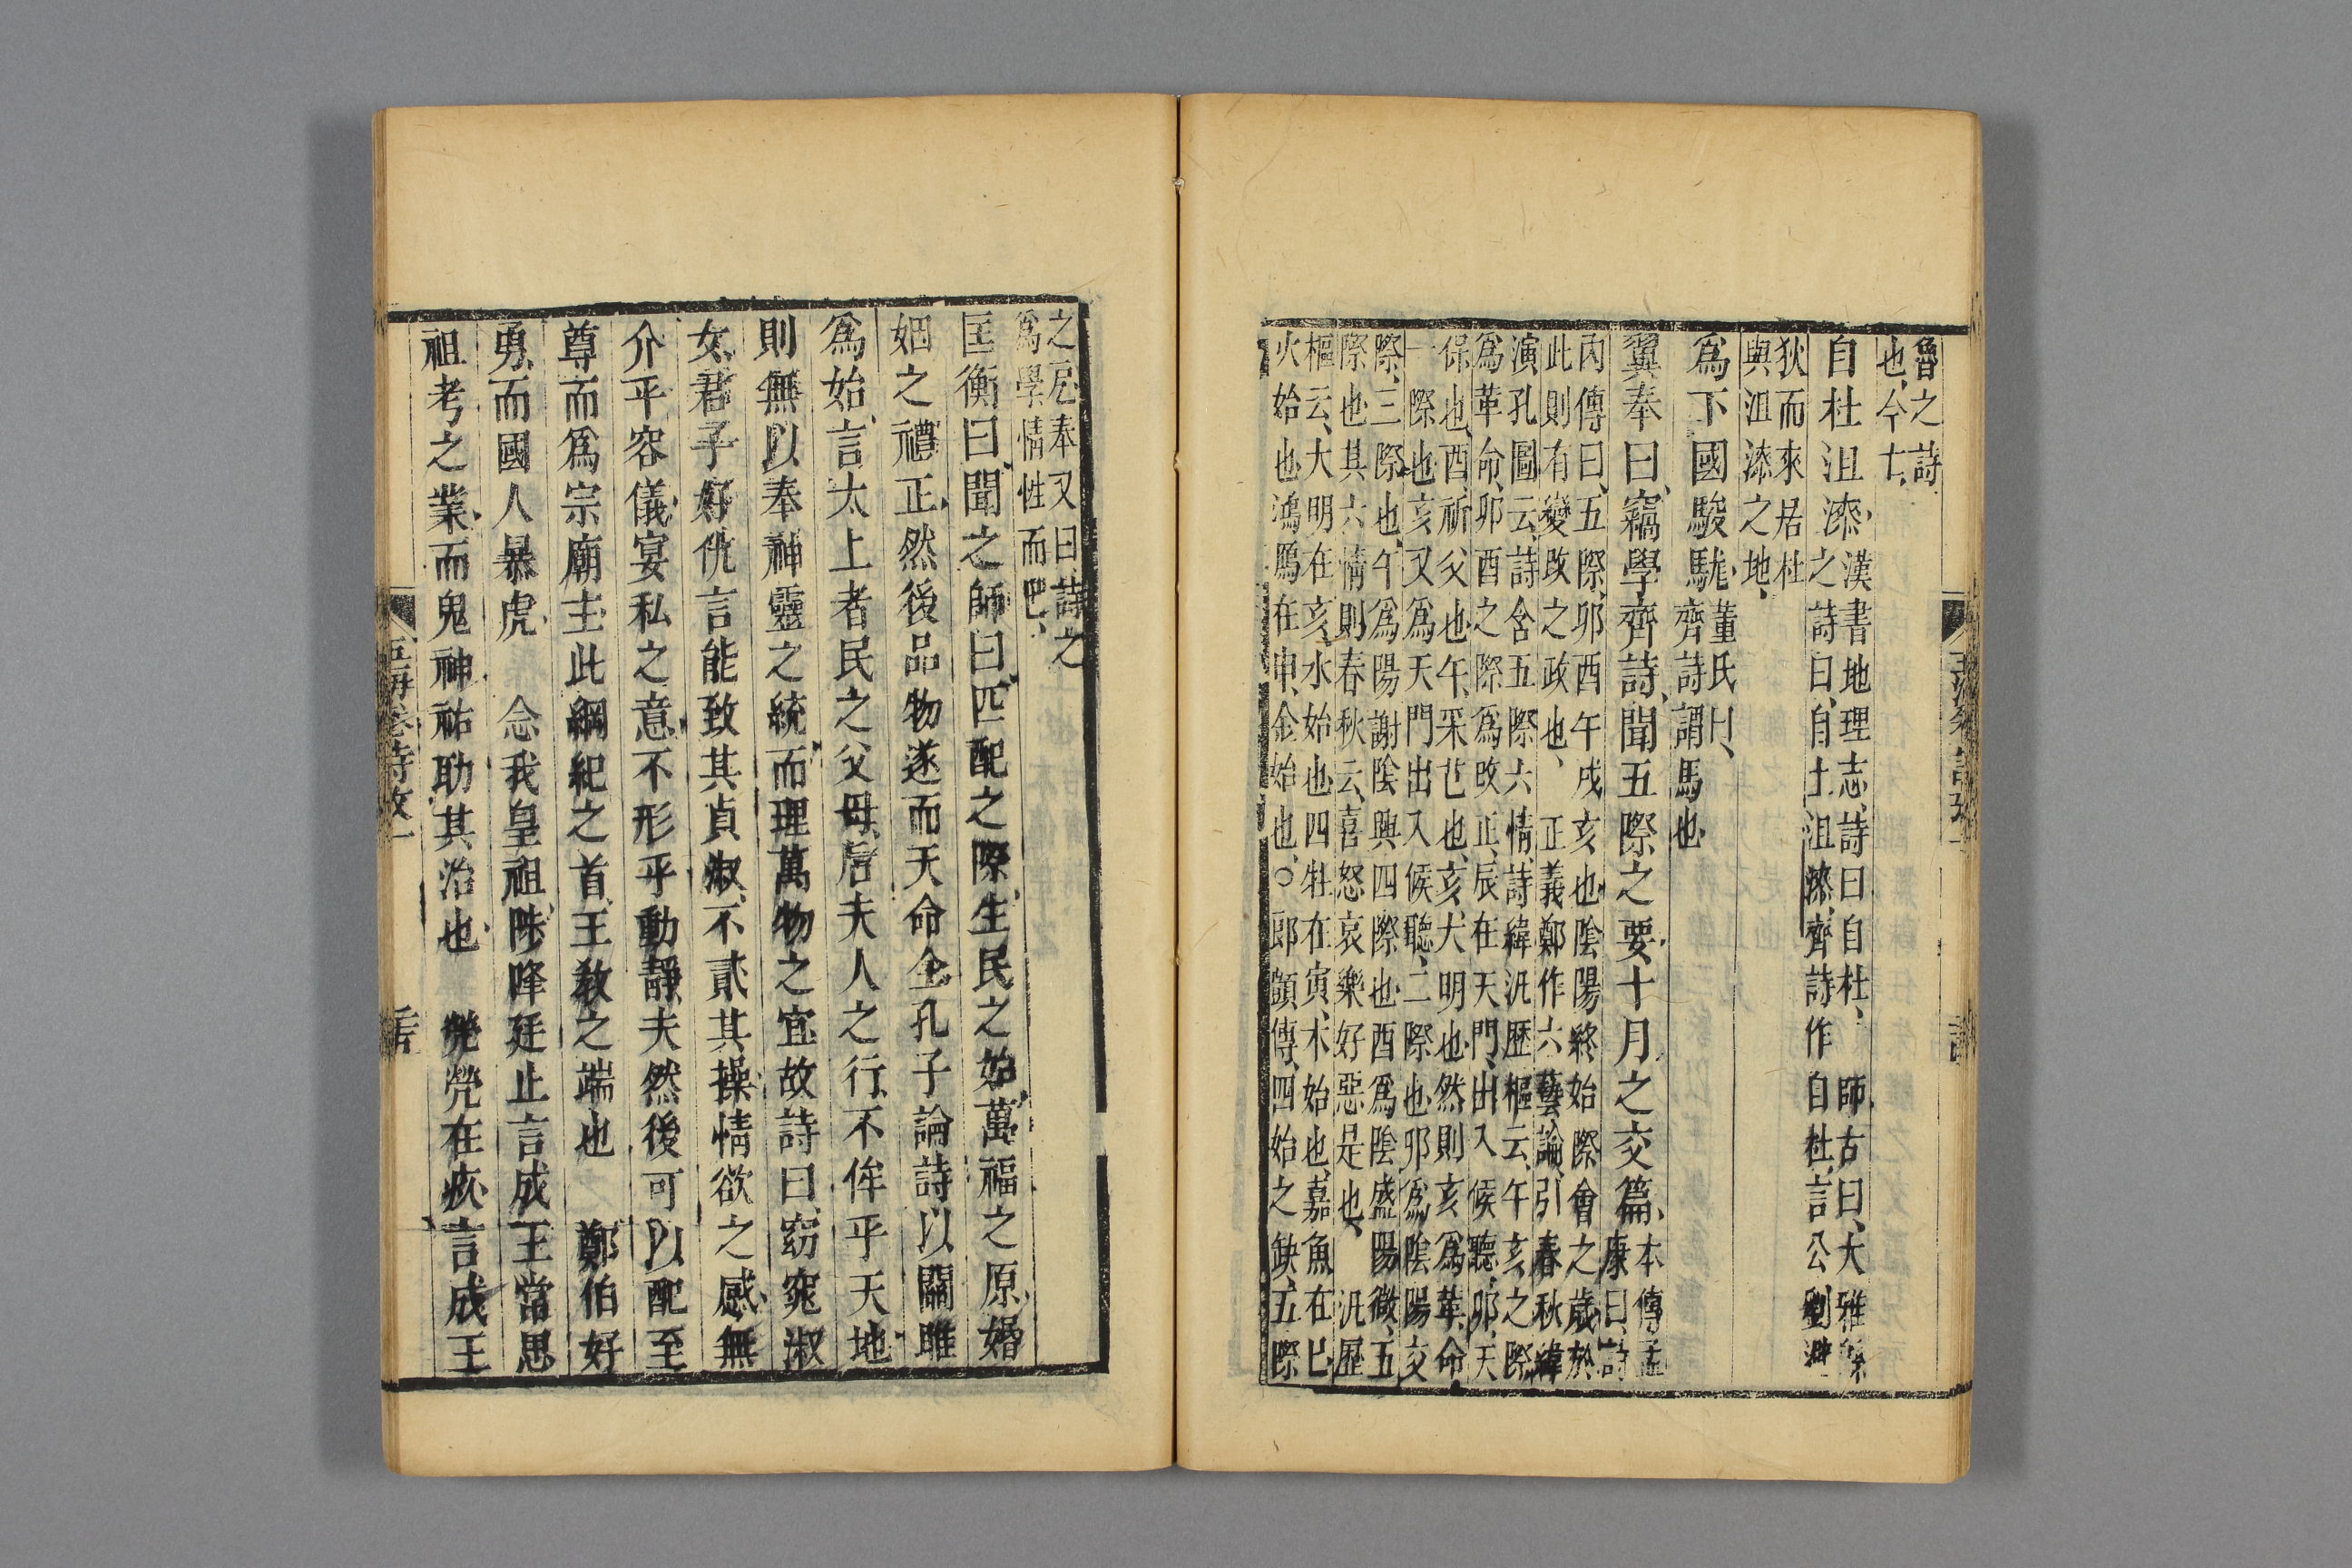 魯之詩
也今亡
自杜沮漆
漢書地理志詩曰自杜 師古曰大雅緜
之詩曰自土沮漆齊詩作自杜言公劉避
狄而來居杜
與沮漆之地
爲下國駿駹
董氏曰
齊詩謂馬也
翼奉曰竊學齊詩聞五際之要十月之交篇
本傳孟
康曰詩
內傳曰五際卯酉午戌亥也陰陽終始際會之歲於
此則有變改之政也 正義鄭作六藝論引春秋緯
演孔圖云詩含五際六情詩緯汎歷樞云午亥之際
爲革命卯酉之際爲改正辰在天門出入候聽卯天
保也酉祈父也午采芑也亥大明也然則亥爲革命
一際也亥又爲天門出入候聽二際也卯爲陰陽交
際三際也午爲陽謝陰興四際也酉爲陰盛陽微五
際也其六情則春秋云喜怒哀樂好惡是也 汎歷
樞云大明在亥水始也四牡在寅木始也嘉魚在巳
火始也鴻鴈在申金始也○郎顗傳四始之缺五際
之戹奉又曰詩之
爲學情性而已
匡衡曰聞之師曰匹配之際生民之始萬福之原婚
姻之禮正然後品物遂而天命全孔子論詩以關雎
爲始言太上者民之父母后夫人之行不侔乎天地
則無以奉神靈之統而理萬物之宜故詩曰窈窕淑
女君子好仇言能致其貞淑不貳其操情欲之感無
介乎容儀宴私之意不形乎動靜夫然後可以配至
尊而爲宗廟主此綱紀之首王教之端也 鄭伯好
勇而國人暴虎 念我皇祖陟降廷止言成王常思
祖考之業而鬼神祐助其治也 煢煢在疚言成王
玉海卷詩攷一